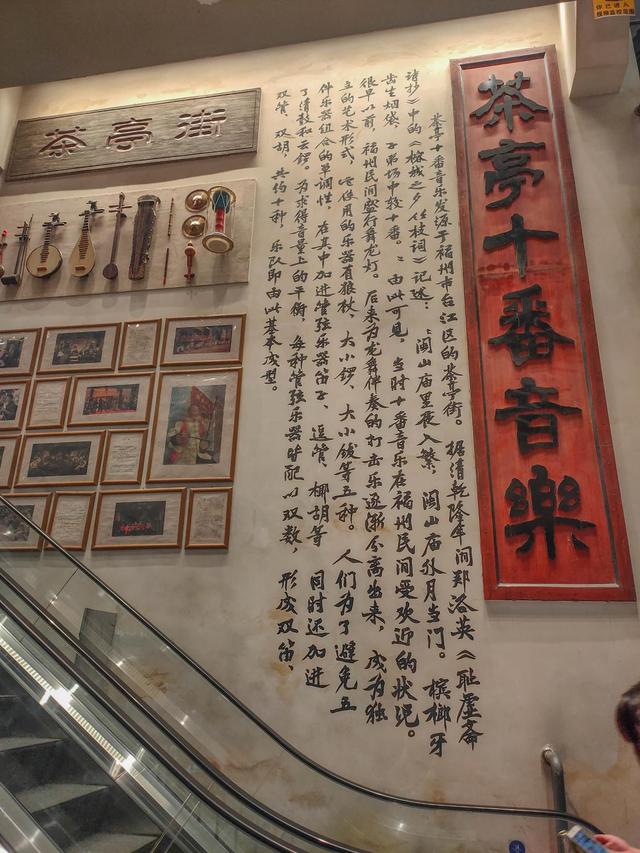 茶亭街
茶亭十番音樂
茶亭十番音乐发源于福州市台江区的茶亭街。据清乾隆年间郑洛英《耻虚斋
诗抄》中的《榕城之夕竹枝词》记述：“闽山庙里夜入繁，闽山庙外月当门。槟榔牙
齿生烟袋，子弟场中较十番。”由此可见，当时十番音乐在福州民间受欢迎的状况。
很早以前，福州民间盛行舞龙灯。后来为龙舞伴奏的打击乐逐渐分离出来，成为独
立的艺术形式，它使用的乐器有狼杖、大小锣、大小钹等五种 人们为了避免五
件乐器组合的单调性，在其中加进管弦乐器笛子、逗管、椰胡等 同时还加进
了清鼓和云锣。为求得音量上的平衡，每种管弦乐器皆配以双数，形成双笛、
双管、双胡，共约十种，乐队即由此基本成型。
你已进入
视频监控范围